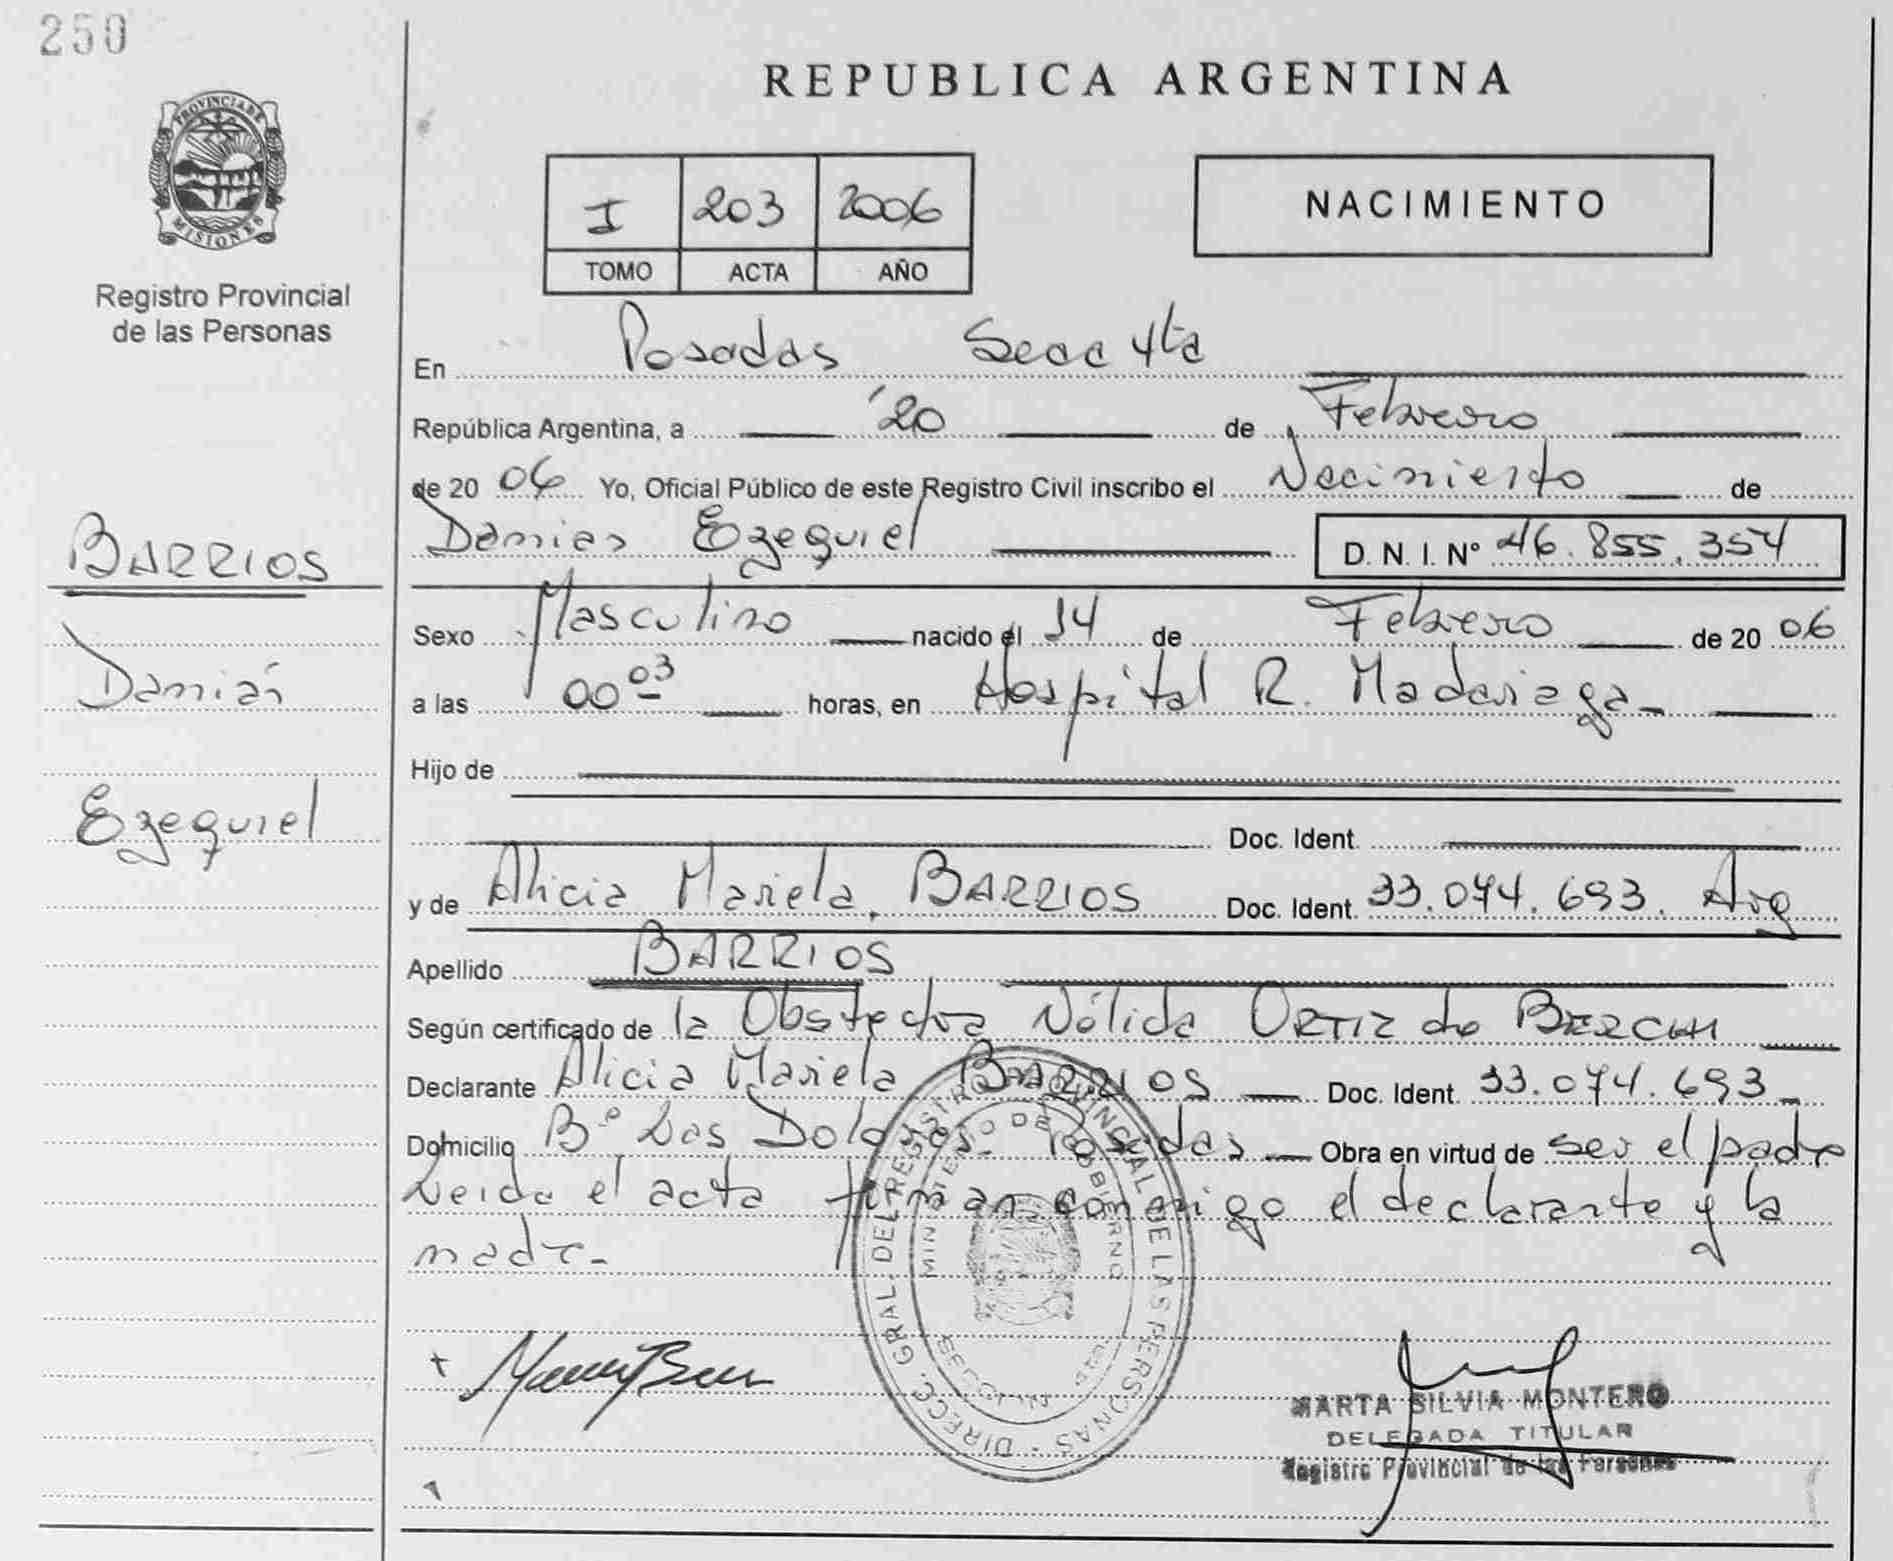 250
PROVINCIA DE
MISIONES
Registro Provincial
de las Personas
BARRIOS
Damián
Ezequiel
REPUBLICA ARGENTINA
I 203 2006
TOMO ACTA AÑO
NACIMIENTO
En Posadas Secc 4ta
República Argentina, a 20 de Febrero
de 20 06 Yo, Oficial Público de este Registro Civil inscribo el Nacimiento de
Damian Ezequiel D. N. I. Nº 46.855.354
Sexo Masculino nacido el 14 de Febrero de 20 06
a las 00 03 horas, en Hospital R. Madariaga-
Hijo de
Doc. Ident.
y de Alicia Mariela, BARRIOS Doc. Ident. 33.074.693. Arg
Apellido BARRIOS
Según certificado de la Obstetra Nélida ORTIZ de
Declarante Alicia Mariela BARRIOS Doc. Ident. 33.074.693-
Domicilio Bº Los Dolores- Posadas Obra en virtud de ser el padre
Leida el acta firman conmigo el declarante y la
madre-
DIRECC. GRAL. DEL REGISTRO PROVINCIAL DE LAS PERSONAS -
MINISTERIO DE GOBIERNO
MARTA SILVIA MONTERO
DELEGADA TITULAR
Registro Provincial de las Personas